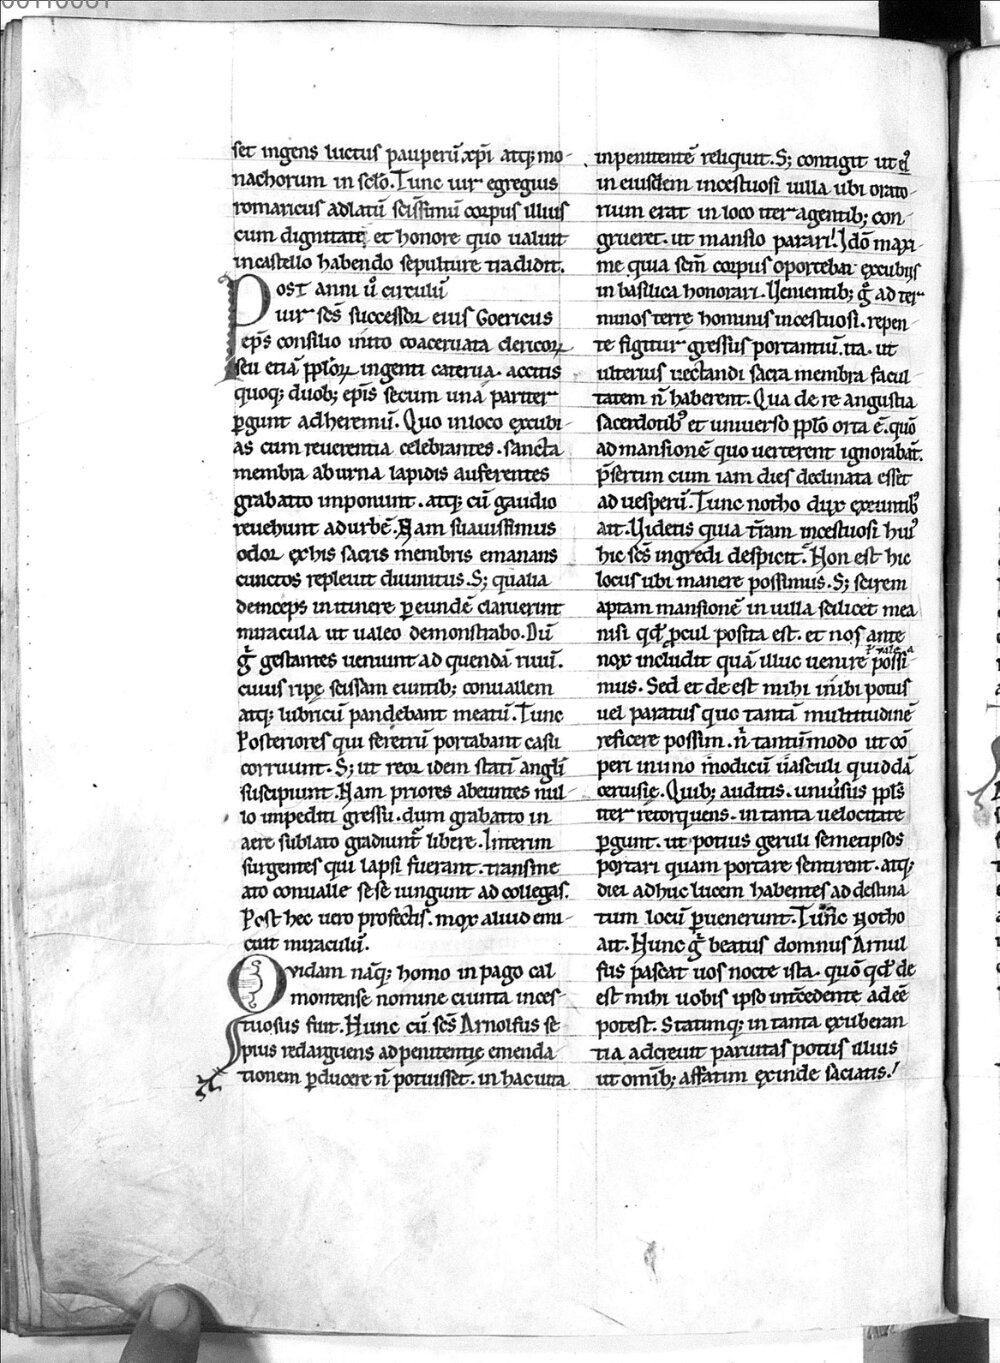 set ingens luctus pauperū xp̄i atq; mo-
nachorum in sclō. Tunc uir egregius
romaricus adlatū scīssimū corpus illius
cum dignitate et honore quo ualuit
incastello habendo sepulture tradidit.
Post anni u̅ circulū
uir scs̄ successor eius Goericus
ep̄s consilio inito coaceruata clericoꝝ
seu etiā pp̄loꝝ ingenti caterua. accitis
quoq; duob; ep̄is secum unā pariter
ꝑgunt ad heremū. Quo in loco excubi-
as cum reuerentia celebrantes. sancta
membra ab urna lapidis auferentes
grabatto imponunt. atq; cū gaudio
reuehunt ad urbē. Nam suauissimus
odor ex his sacris membris emanans
cunctos repleuit diuinitus. S; qualia
deinceps in itinere ꝑ eundē claruerint
miracula ut ualeo demonstrabo. Dū
gͥ gestantes ueniunt ad quendā riuū.
cuius ripę scissam euntib; conuallem
atq; lubricū pandebant meatū. Tunc
Posteriores qui feretrū portabant casu
corruunt. S; ut reor idem statī angli
suscipiunt. Nam priores abeuntes nul-
lo impediti gressu. dum grabatto in
aere sublato gradiunt᷑ libere. Interim
surgentes qui lapsi fuerant. transme
ato conualle sese iungunt ad collegas.
Post hec uero profectis. mox aliud emi-
cuit miraculū.
Quidam nāq; homo in pago cal
montense nomine ciunta inces-
tuosus fuit. Hunc cū scs̄ Arnolfus se
pius redarguens ad penitentię emenda
tionem ꝑducere n̄ potuisset. in hac uita
inpenitentē reliquit. S; contigit ut eꝰ
in eiusdem incestuosi uilla ubi orato-
rium erat in loco iter agentib; con-
grueret. ut mansio parari. Idō maxi-
me quia scm̄ corpus oportebat excubiis
in basilica honorari. Uenientib; gͦ ad ter-
minos terrę hominis incestuosi. repen-
te figitur gressus portantiū. ita. ut
ulterius uectandi sacra membra facul-
tatem n̄ haberent. Qua de re angustia
sacerdotibꝰ et uniuerso pp̄lo orta ē. quō
ad mansionē quo uerterent ignorabāt.
p̄sertim cum iam dies declinata esset
ad uesperū. Tunc notho dux exeuntibꝰ
ait. Uidetis quia tr̄am incestuosi huiꝰ
hic scs̄ ingredi despicit. Non est hic
locus ubi manere possimus. S; scirem
aptam mansionē in uilla scilicet mea
nisi qd̄ ꝓcul posita est. et nos ante
nox includit quā illuc uenire possi-
mus. Sed et de est mihi inibi potus
uel paratus quo tantā multitudinē
reficere possim. n̄ tantūmodo ut cō
peri in uno modicū uasculi quiddā
ceruisię. Quib; auditis. uniūsus pp̄ls
iter retorquens. in tanta uelocitate
ꝑgunt. ut potius geruli semetipsos
portari quam portare sentirent. atq;
diei adhuc lucem habentes ad destina
tum locū ꝑuenerunt. Tunc Notho
ait. Nunc gͥ beatus domnus Arnul
fus pascat uos nocte ista. quō qd̄ de
est mihi uobis ipso int̄cedente adeē
potest. Statimq; in tanta exuberan
tia adcreuit paruitas potus illius
ut omib; affatim exinde saciatis.